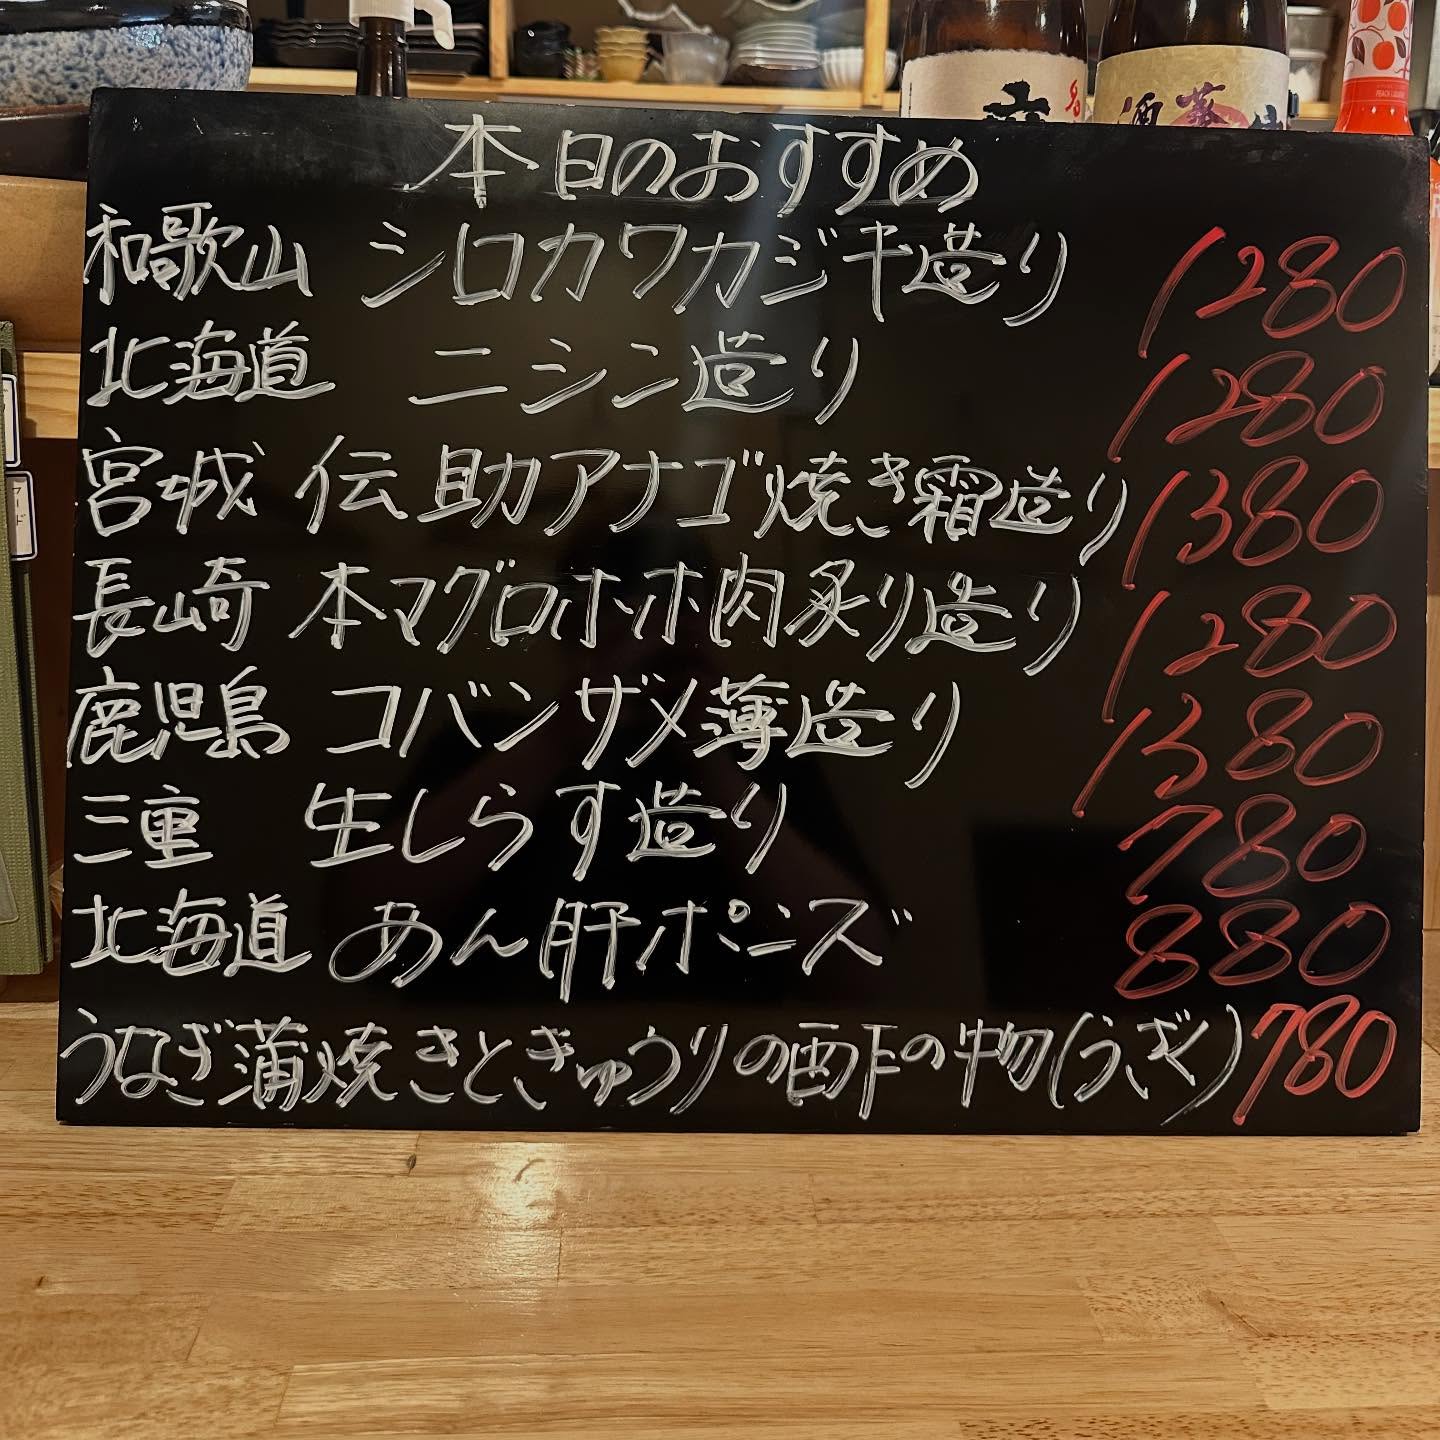 本日のおすすめ
和歌山 シロカワカジキ造り 1280
北海道 ニシン造り 1280
宮城 伝助アナゴ焼き霜造り 1380
長崎 本マグロホホ肉炙り造り 1280
鹿児島 コバンザメ薄造り 1380
三重 生しらす造り 780
北海道 あん肝ポンズ 880
うなぎ蒲焼きときゅうりの酢の物(うざく) 780
PEACH